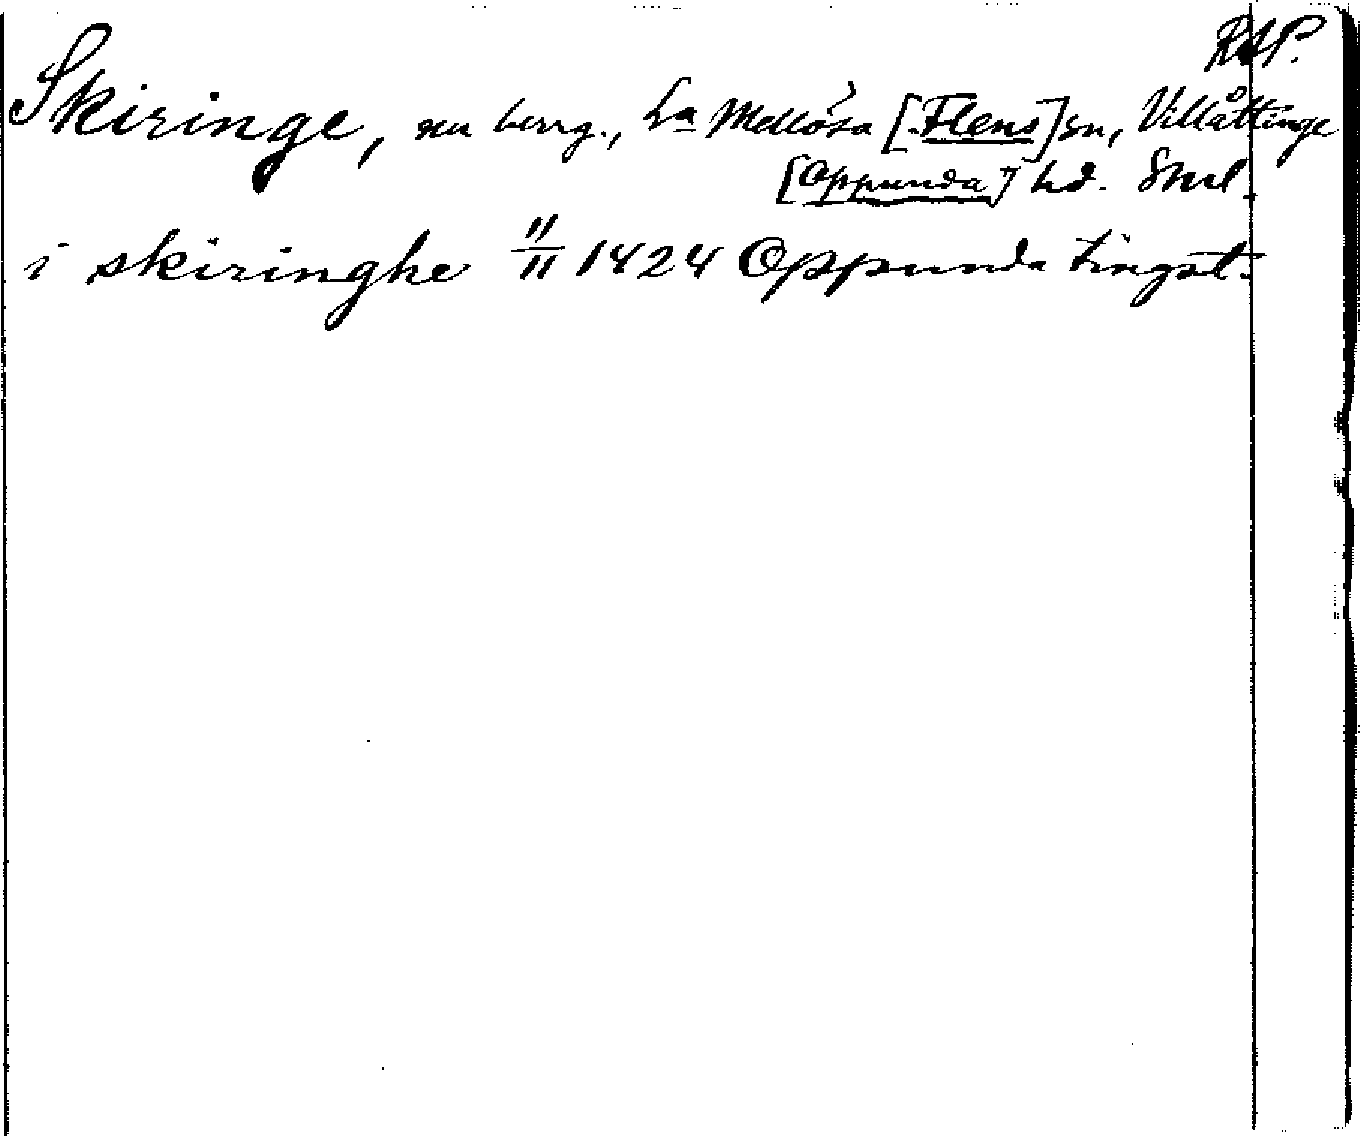 RAP.
Skiringe, nu herrg., La Mellösa [Flens] sn, Villåttinge
[Oppunda] hd. Sml.
i skiringhe 11/11 1424 Oppunda tingst.